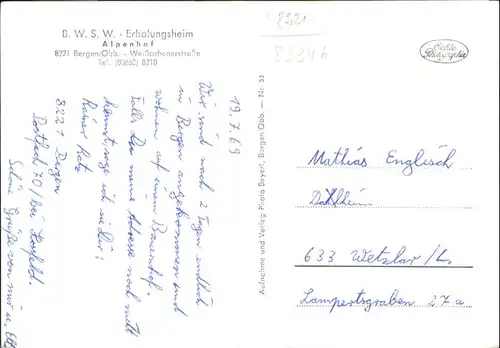 B. W. S. W. - Erholungsheim
Alpenhof
8221 Bergen/Obb. - Weißachenerstraße
Tel. (03662) 8210
8221
8234b
Echte
Photographie
19.7.69
Wir sind nach 2 Tagen endlich
in Bergen angekommen und
wohnen auf einem Bauernhof.
Falls Du meine Adresse noch nicht
kennst, sage ich sie Dir:
Rainer Katz
8221 Bergen
Postfach 70/Bei
Schöne Grüße von mir u.
Aufnahme und Verlag Photo Beyerl, Bergen/Obb. — Nr. 52
Mathias Englisch
Dahlheim
633 Wetzlar/L.
Lampertsgraben 27a